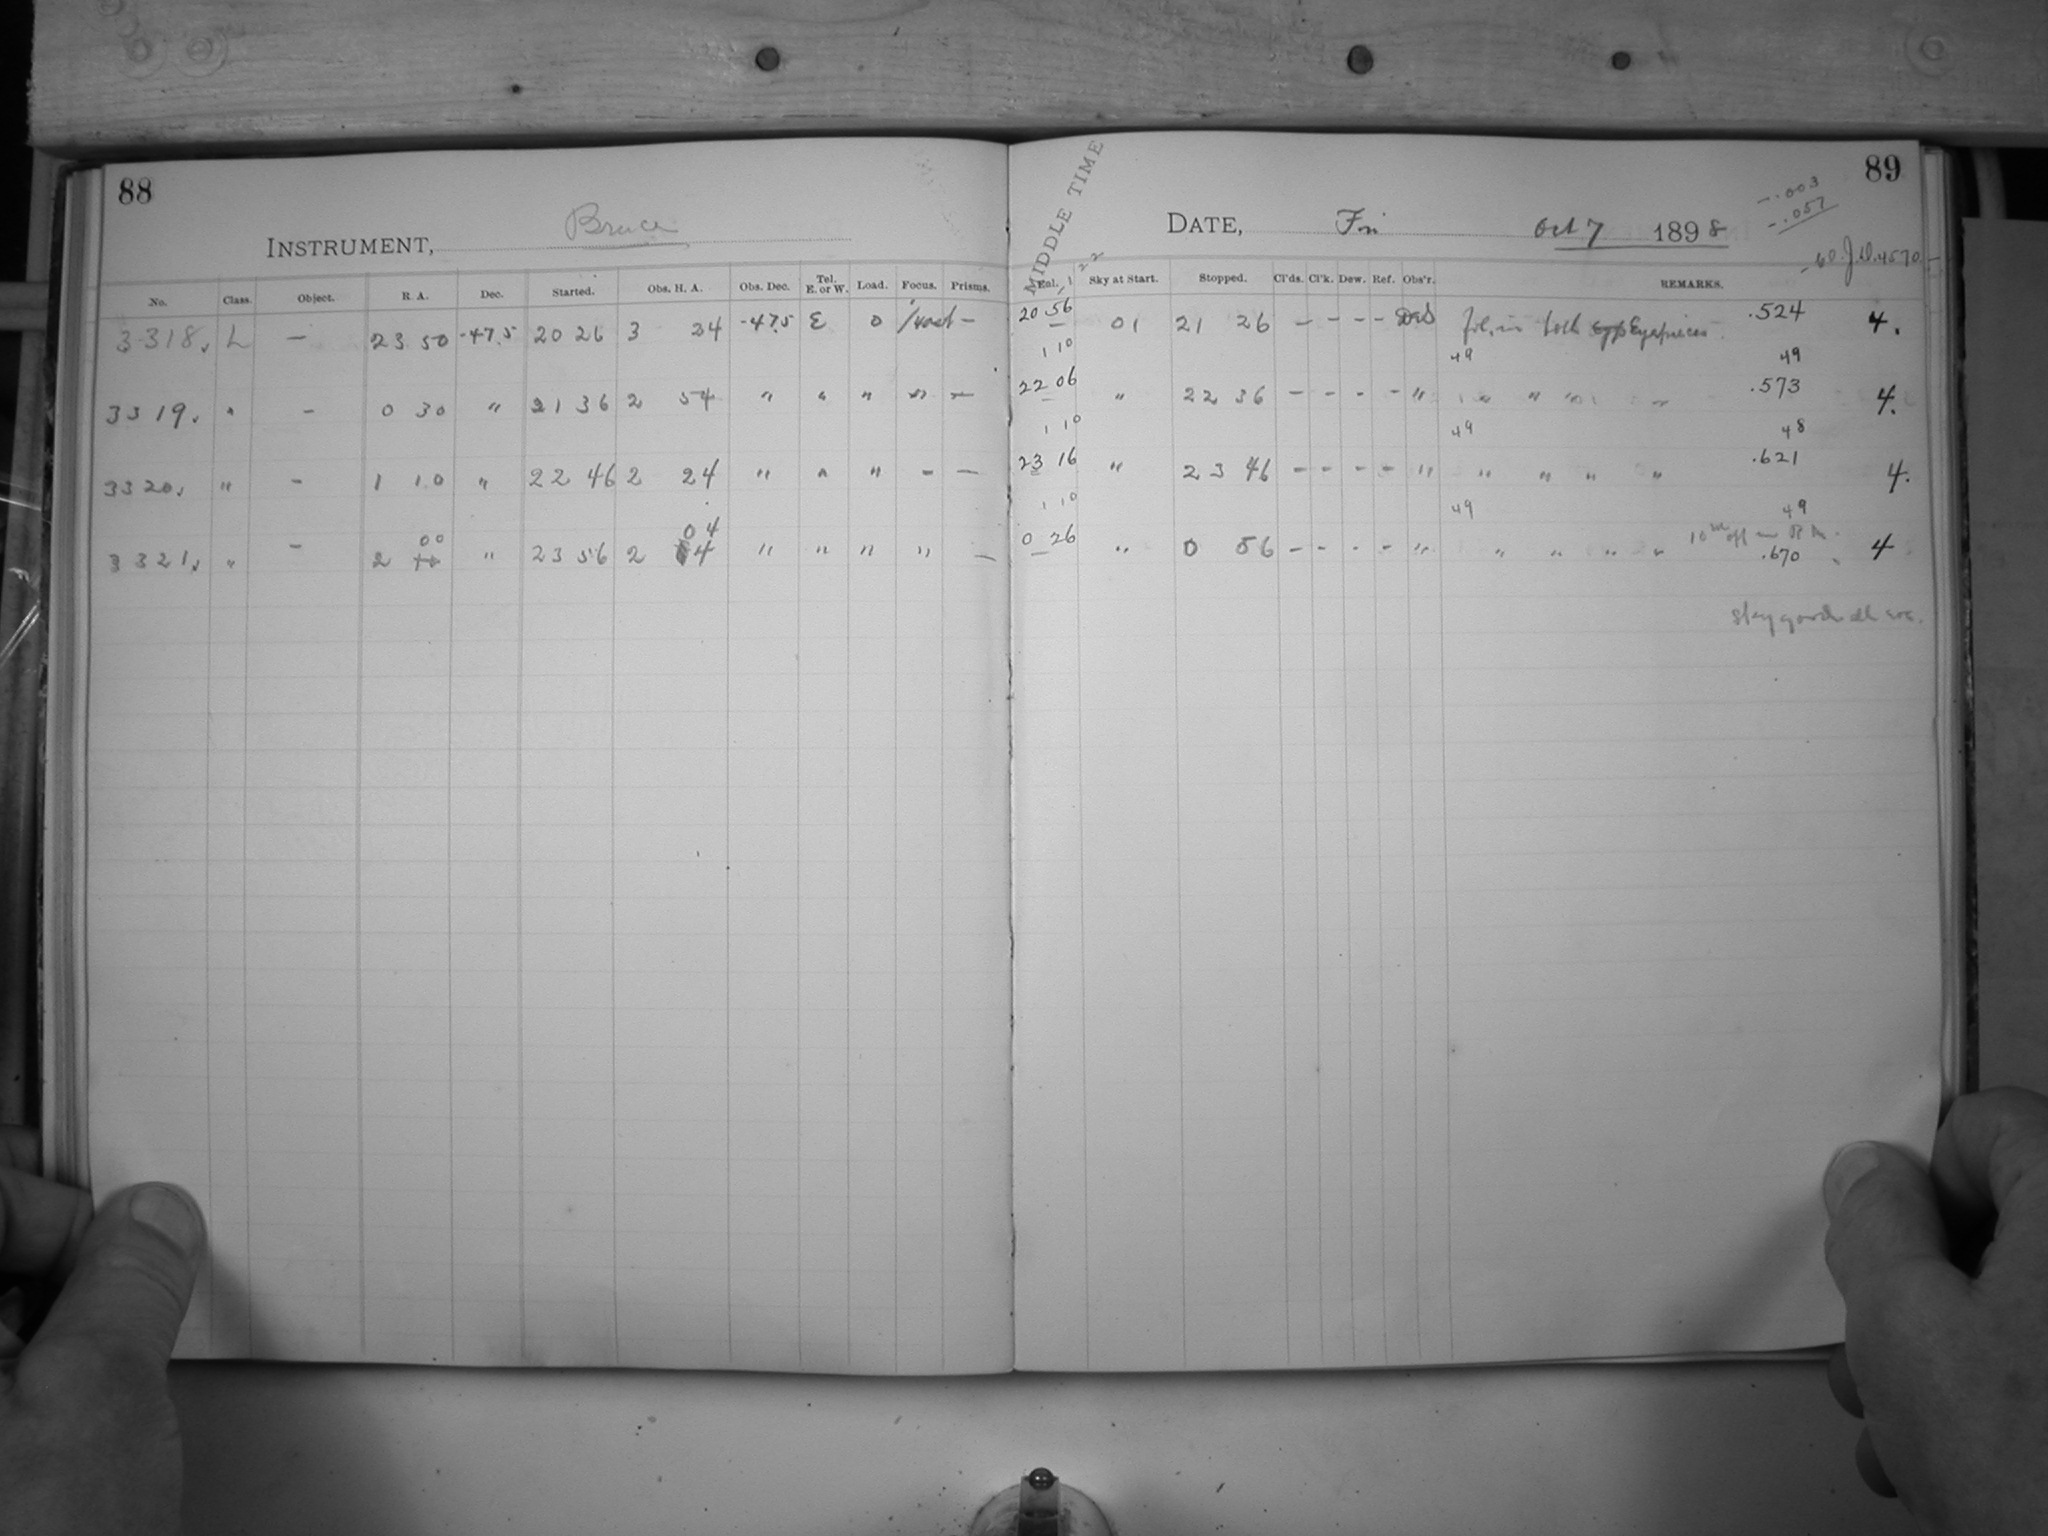 88
INSTRUMENT, Bruce
No. Class. Object. R. A. Dec. Started. Obs. H. A. Obs. Dec. Tel. E. or W. Load. Focus. Prisms.
3318. L — 23 50 -47.5 20 26 3 24 -47.5 E 0 —
3319. " — 0 30 " 21 36 2 54 " " " " —
3320. " — 1 10 " 22 46 2 24 " " " — —
00 04
3321. " — 2 10 " 23 56 2 14 " " " " —
89
MIDDLE TIME
DATE, Fri Oct 7 1898
-.003
-.057
-60 J.D. 4570
Enl. Sky at Start. Stopped. Cl'ds. Cl'k. Dew. Ref. Obs'r. REMARKS.
20 56 01 21 26 — — — — fol. in both Eyepieces .524 4.
1 10 49 49
22 06 " 22 36 — — — — " " " " " .573 4.
1 10 49 48
23 16 " 23 46 — — — — " " " " " .621 4.
1 10 49 49
10m off in R A.
0 26 " 0 56 — — — — " " " " " .670 4
Sky good all eve.